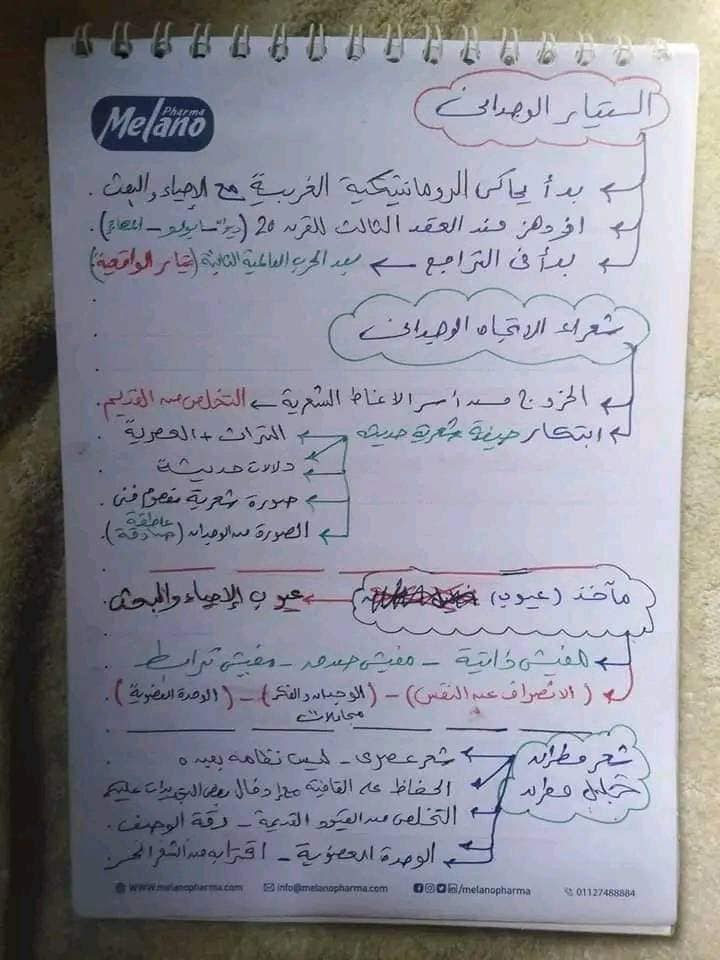 Melano Pharma
التيار الوجدانى
بدأ يحاكى الرومانتيكية الغربية مع الإحياء والبعث .
ازدهر منذ العقد الثالث للقرن 20 ( - المهاجر).
بدأ فى التراجع ← بعد الحرب العالمية الثانية (تيار الواقعية)
شعراء الاتجاه الوجدانى
الخروج من أسر الأنماط الشعرية ← التخلص من القديم.
ابتكار صيغة شعرية حديثة
التراث + العصرية
دلالات حديثة
صورة شعرية فنى
الصورة من الوجدان (عاطفة صادقة).
مآخذ (عيوب) ← عيوب الإحياء والبعث.
مفيش ذاتية - مفيش صدق - مفيش ترابط
(الانصراف عن النفس) - (الوجدان والفكر) - (الوحدة العضوية)
مجاملات
شعر مطران
خليل مطران
شعر عصرى - ليس نظامه بعبده
الحفاظ على القافية مع إدخال بعض
التخلص من القيود القديمة - دقة الوصف .
الوحدة العضوية - اقترابه من الشعر الحر.
www.melanopharma.com info@melanopharma.com /melanopharma 01127488884